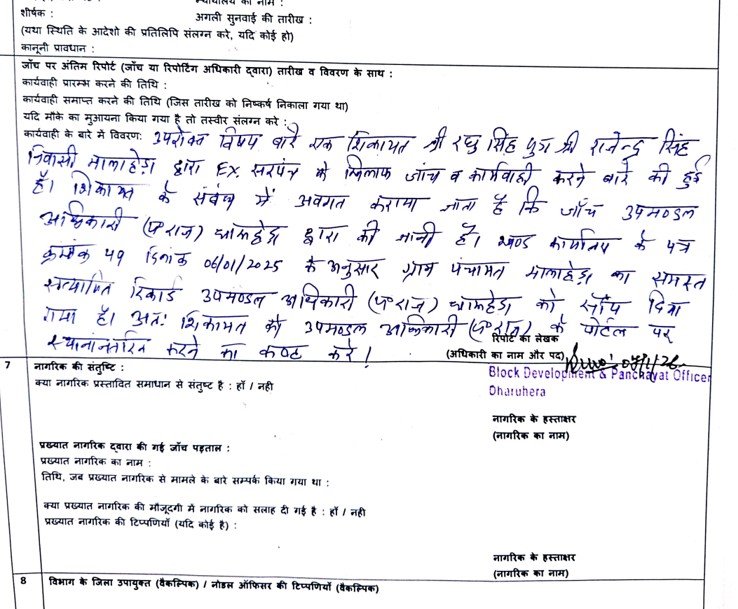 न्यायालय का नाम :
शीर्षक :
अगली सुनवाई की तारीख :
(यथा स्थिति के आदेशो की प्रतिलिपि संलग्न करे, यदि कोई हो)
कानूनी प्रावधान :
जाँच पर अंतिम रिपोर्ट (जाँच या रिपोर्टिंग अधिकारी द्वारा) तारीख व विवरण के साथ :
कार्यवाही प्रारम्भ करने की तिथि :
कार्यवाही समाप्त करने की तिथि (जिस तारीख को निष्कर्ष निकाला गया था)
यदि मौके का मुआयना किया गया है तो तस्वीर संलग्न करे :
कार्यवाही के बारे में विवरण: उपरोक्त विषय बारे एक शिकायत श्री रघु सिंह पुत्र श्री राजेन्द्र सिंह
निवासी मालाहेड़ा द्वारा Ex. सरपंच के खिलाफ जांच व कार्यवाही करने बारे की हुई
है। शिकायत के संबंध में अवगत कराया जाता है कि जाँच उपमण्डल
अधिकारी (पं० राज) धारूहेड़ा द्वारा की जानी है। खण्ड कार्यालय के पत्र
क्रमांक 49 दिनांक 06/01/2025 के अनुसार ग्राम पंचायत मालाहेड़ा का समस्त
सत्यापित रिकार्ड उपमण्डल अधिकारी (पं० राज) धारूहेड़ा को सौंप दिया
गया है। अतः शिकायत को उपमण्डल अधिकारी (पं० राज) के पोर्टल पर
स्थानांतरित करने का कष्ट करे।
रिपोर्ट का लेखक
(अधिकारी का नाम और पद)
Block Development & Panchayat Officer
Dharuhera
7 नागरिक की संतुष्टि :
क्या नागरिक प्रस्तावित समाधान से संतुष्ट है : हाँ / नही
नागरिक के हस्ताक्षर
(नागरिक का नाम)
प्रख्यात नागरिक द्वारा की गई जाँच पड़ताल :
प्रख्यात नागरिक का नाम :
तिथि, जब प्रख्यात नागरिक से मामले के बारे सम्पर्क किया गया था :
क्या प्रख्यात नागरिक की मौजूदगी में नागरिक को सलाह दी गई है : हाँ / नही
प्रख्यात नागरिक की टिप्पणियाँ (यदि कोई है) :
नागरिक के हस्ताक्षर
(नागरिक का नाम)
8 विभाग के जिला उपायुक्त (वैकल्पिक) / नोडल ऑफिसर की टिप्पणियाँ (वैकल्पिक)